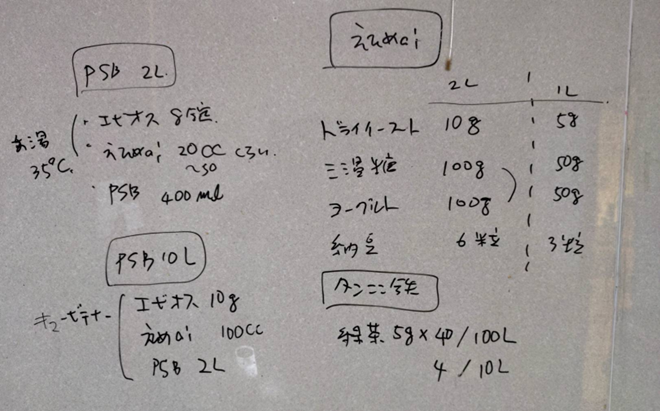 PSB 2L
お湯 35℃
・エビオス 8錠
・えひめai 20cc くらい
~50
・PSB 400ml
PSB 10L
エビオス 10g
えひめai 100cc
PSB 2L
えひめai
2L 1L
ドライイースト 10g 5g
三温糖 100g 50g
ヨーグルト 100g 50g
納豆 6粒 3粒
タンニン鉄
緑茶 5g×40/100L
4/10L